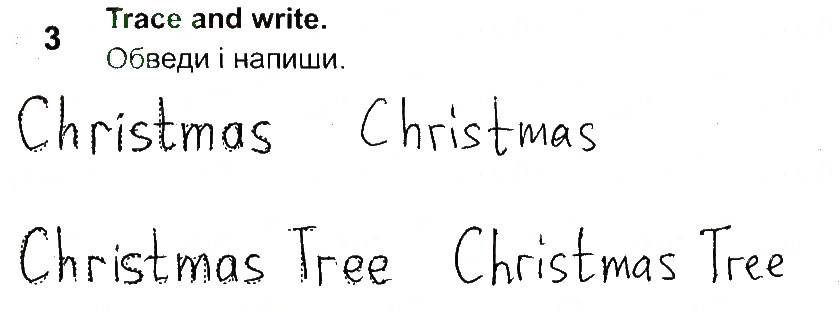 3 Trace and write.
Обведи і напиши.
Christmas Christmas
Christmas Tree Christmas Tree